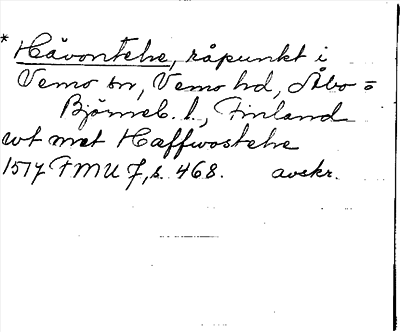 * Hävontehe, råpunkt i
Vemo sn, Vemo hd, Åbo =
Björneb. l., Finland
wt met Haffwostehe
1517 FMU 7, s. 468. avskr.